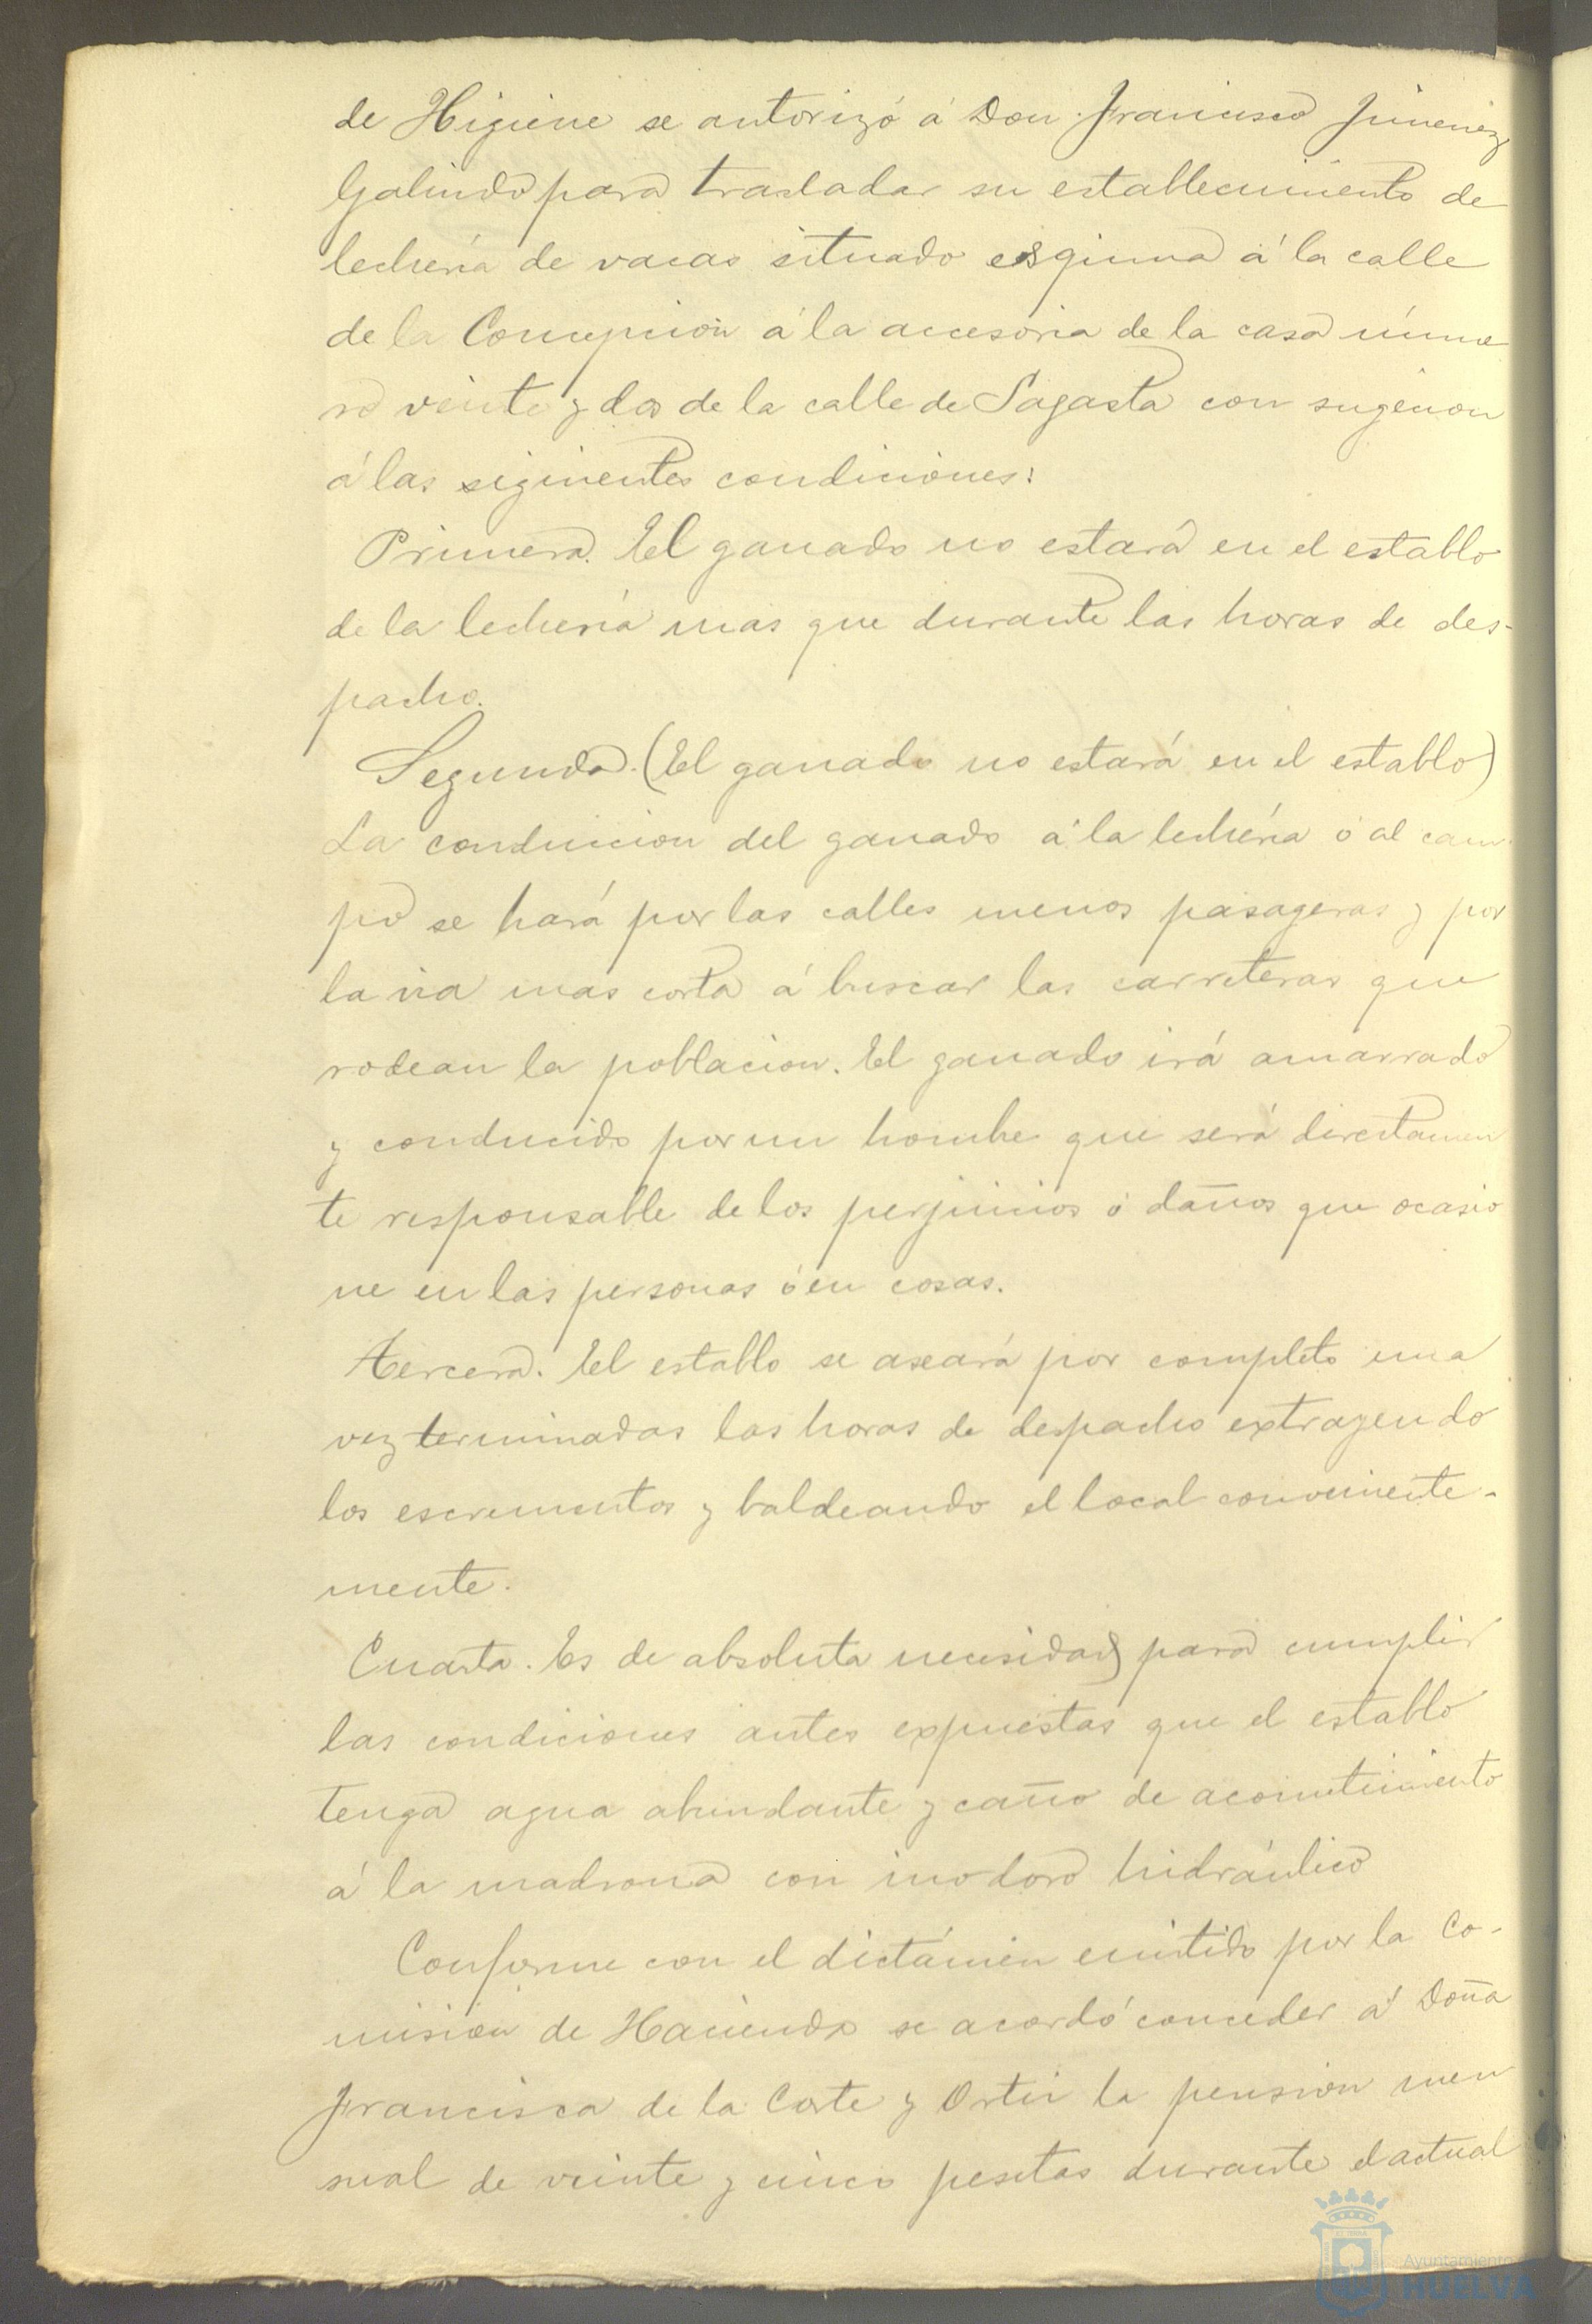 de Higiene se autorizó á Don Francisco Jimenez
Galindo para trasladar su establecimiento de
lechería de vacas situado esquina á la calle
de la Concepción á la accesoria de la casa núme
ro veinte y dos de la calle de Sagasta con sugecion
á las siguientes condiciones:
Primera. El ganado no estará en el establo
de la lechería mas que durante las horas de des-
pacho.
Segunda. (El ganado no estará en el establo)
La conduccion del ganado á la lechería ó al cam
po se hará por las calles menos pasageras y por
la via mas corta á buscar las carreteras que
rodean la poblacion. El ganado irá amarrado
y conducido por un hombre que será directamen
te responsable de los perjuicios ó daños que ocasio
ne en las personas ó en cosas.
Tercera. El establo se aseará por completo una
vez terminadas las horas de despacho extrayendo
los escrementos y baldeando el local conveniente-
mente.
Cuarta. Es de absoluta necesidad para cumplir
las condiciones antes expuestas que el establo
tenga agua abundante y caño de acometimiento
á la madrona con inodoro hidráulico
Conforme con el dictámen emitido por la Co-
misión de Hacienda se acordó conceder á Doña
Francisca de la Corte y Ortiz la pension men
sual de veinte y cinco pesetas durante el actual
Ayuntamiento
HUELVA